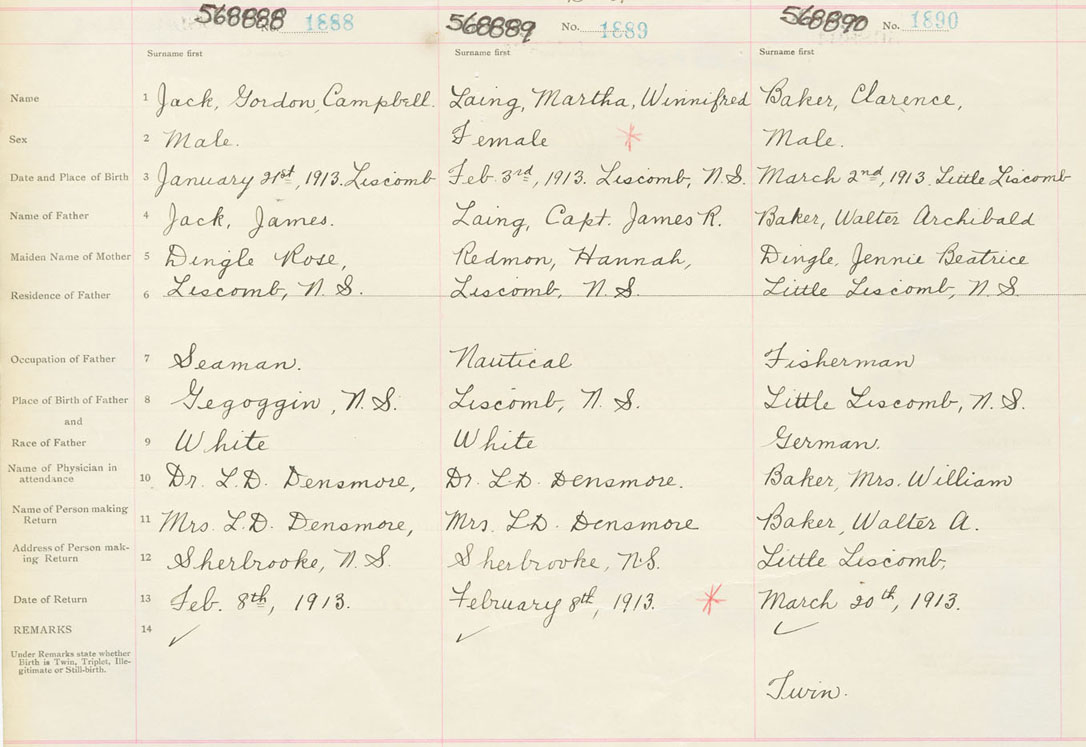 568888 No. 1888 568889 No. 1889 568890 No. 1890
Surname first Surname first Surname first
Name 1 Jack, Gordon, Campbell. Laing, Martha, Winnifred Baker, Clarence,
Sex 2 Male. Female Male.
Date and Place of Birth 3 January 21st, 1913. Liscomb Feb. 3rd, 1913. Liscomb, N.S. March 2nd, 1913. Little Liscomb
Name of Father 4 Jack, James. Laing, Capt. James R. Baker, Walter Archibald
Maiden Name of Mother 5 Dingle Rose, Redmon, Hannah, Dingle, Jennie Beatrice
Residence of Father 6 Liscomb, N.S. Liscomb, N.S. Little Liscomb, N.S.
Occupation of Father 7 Seaman. Nautical Fisherman
Place of Birth of Father 8 Gegoggin, N.S. Liscomb, N.S. Little Liscomb, N.S.
and
Race of Father 9 White White German.
Name of Physician in
attendance 10 Dr. L.D. Densmore, Dr. L.D. Densmore. Baker, Mrs. William
Name of Person making
Return 11 Mrs. L.D. Densmore, Mrs. L.D. Densmore Baker, Walter A.
Address of Person mak-
ing Return 12 Sherbrooke, N.S. Sherbrooke, N.S. Little Liscomb,
Date of Return 13 Feb. 8th, 1913. February 8th, 1913. March 20th, 1913.
REMARKS 14
Under Remarks state whether
Birth is Twin, Triplet, Ille-
gitimate or Still-birth.
Twin.